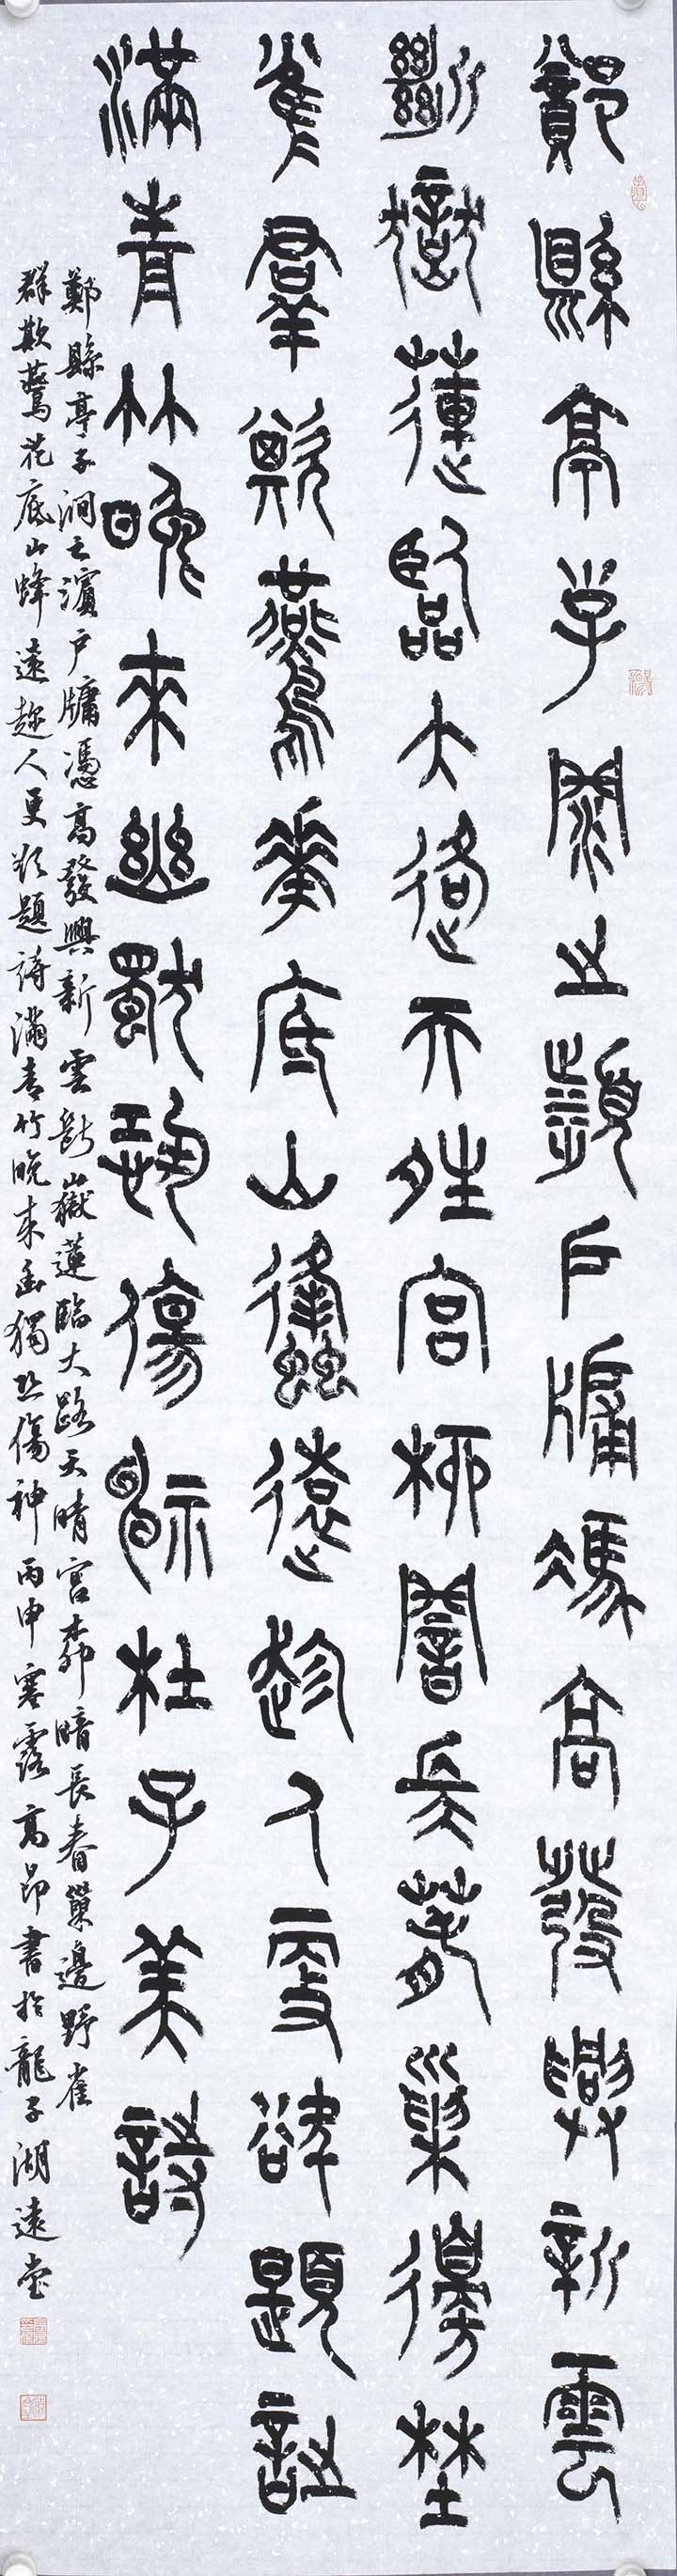 鄭縣亭子澗之濱戶牖馮高發興新雲
斷嶽蓮臨大路天晴宮柳闇長春巢邊埜
雀羣欺鷰華底山蜂遠趁人更欲題詩
滿青竹晚來幽獨恐傷神杜子美詩
鄭縣亭子澗之濱戶牖憑高發興新雲斷嶽蓮臨大路天晴宮柳暗長春巢邊野雀
群欺鷰花底山蜂遠趁人更欲題詩滿青竹晚來幽獨恐傷神丙申寒露高昂書於龍子湖遠堂